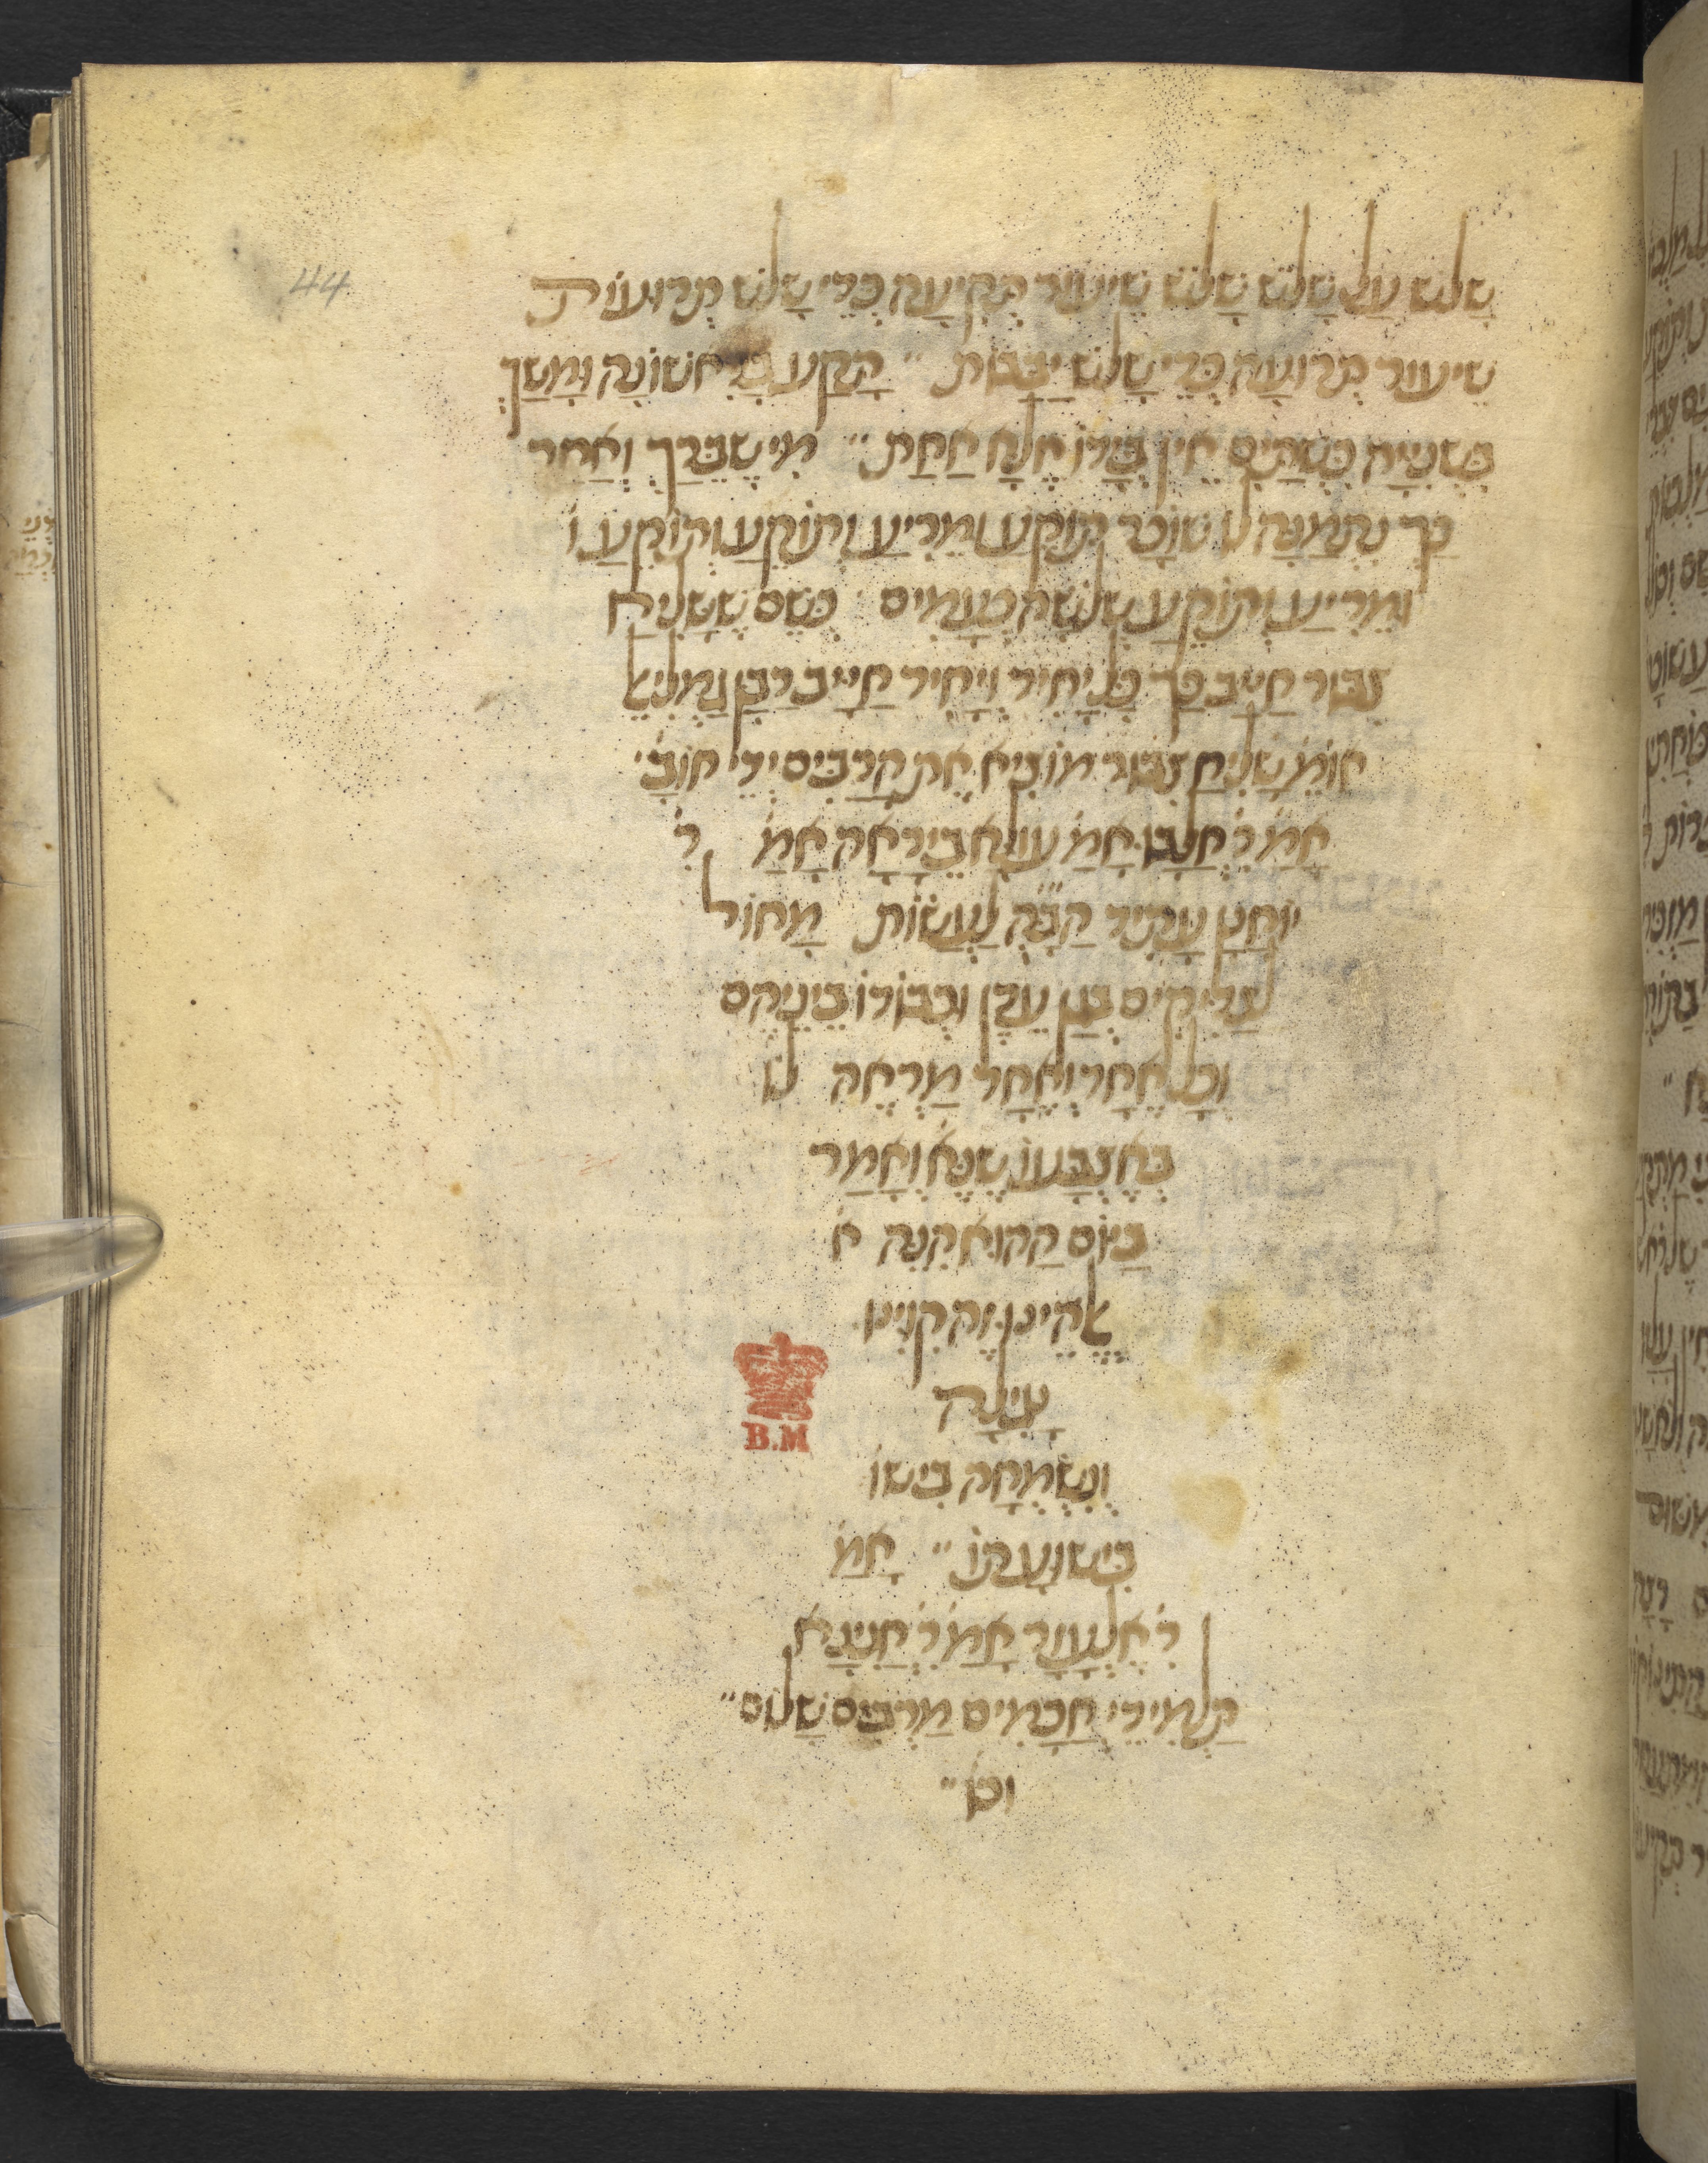 44
שָׁלשׁ עַל שָׁלשׁ שָׁלשׁ שִׁיעוּר תְּקִיעָה כְּדֵי שָׁלשׁ תְּרוּעוֹת
שִׁיעוּר תְּרוּעָה כְּדֵי שָׁלשׁ יַבָּבוֹת ״ תָּקַע בָּרִאשׁוֹנָה וּמָשַׁךְ
בַּשְּׁנִיָּה כִּשְׁתַּיִם אֵין בְּיָדוֹ אֶלָּא אַחַת ״ מִי שֶׁבֵּרַךְ וְאַחַר
כַּךְ נִתְמַנָּה לוֹ שׁוֹפָר תּוֹקֵעַ וּמֵרִיעַ וְתוֹקֵעַ וְתוֹקֵעַ ו
וּמֵרִיעַ וְתוֹקֵעַ שְׁלשָׁה פְּעָמִים כְּשֵׁם שֶׁשְּׁלִיחַ
צִבּוּר חַיָּיב כַּךְ כָּל יָחִיד וְיָחִיד חַיָּיב רַבָּן גַּמְלִיאֵ
אוֹמֵ׳ שָׁלִיחַ צִבּוּר מוֹצִיא אֶת הָרַבִּים יְדֵי חוֹבָ׳
אָמַ׳ ר׳ חֶלְבּוֹ אָמַ׳ עוּלָּא בֵירָאָה אָמַ׳ ר׳
יוֹחָנָן עָתִיד הַקָּבָּ״ה לַעֲשׂוֹת מָחוֹל
לַצַּדִּיקִים בְּגַן עֵדֶן וּכְבוֹדוֹ בֵּינֵיהֶם
וְכָל אֶחָד וְאֶחָד מַרְאֶה לוֹ
בְּאֶצְבָּעוֹ שֶׁנֶּאֱ׳ וְאָמַר
בַּיּוֹם הַהוּא הִנֵּה א
אֱלֹהֵינוּ זֶה קִוִּינוּ
נָגִילָה
וְנִשְׂמְחָה בִישׁוּ
בִּישׁוּעָתוֹ ״ אָמַ׳
ר׳ אֶלְעָזָר אָמַ׳ ר׳ חֲנִינָא
תַּלְמִידֵי חֲכָמִים מַרְבִּים שָׁלוֹם ״
וכו׳ ״
B.M